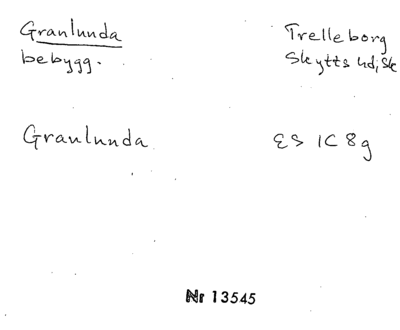 Granlunda Trelleborg
bebygg. Skytts hd, Sk
Granlunda ES 1C 8g
Nr 13545